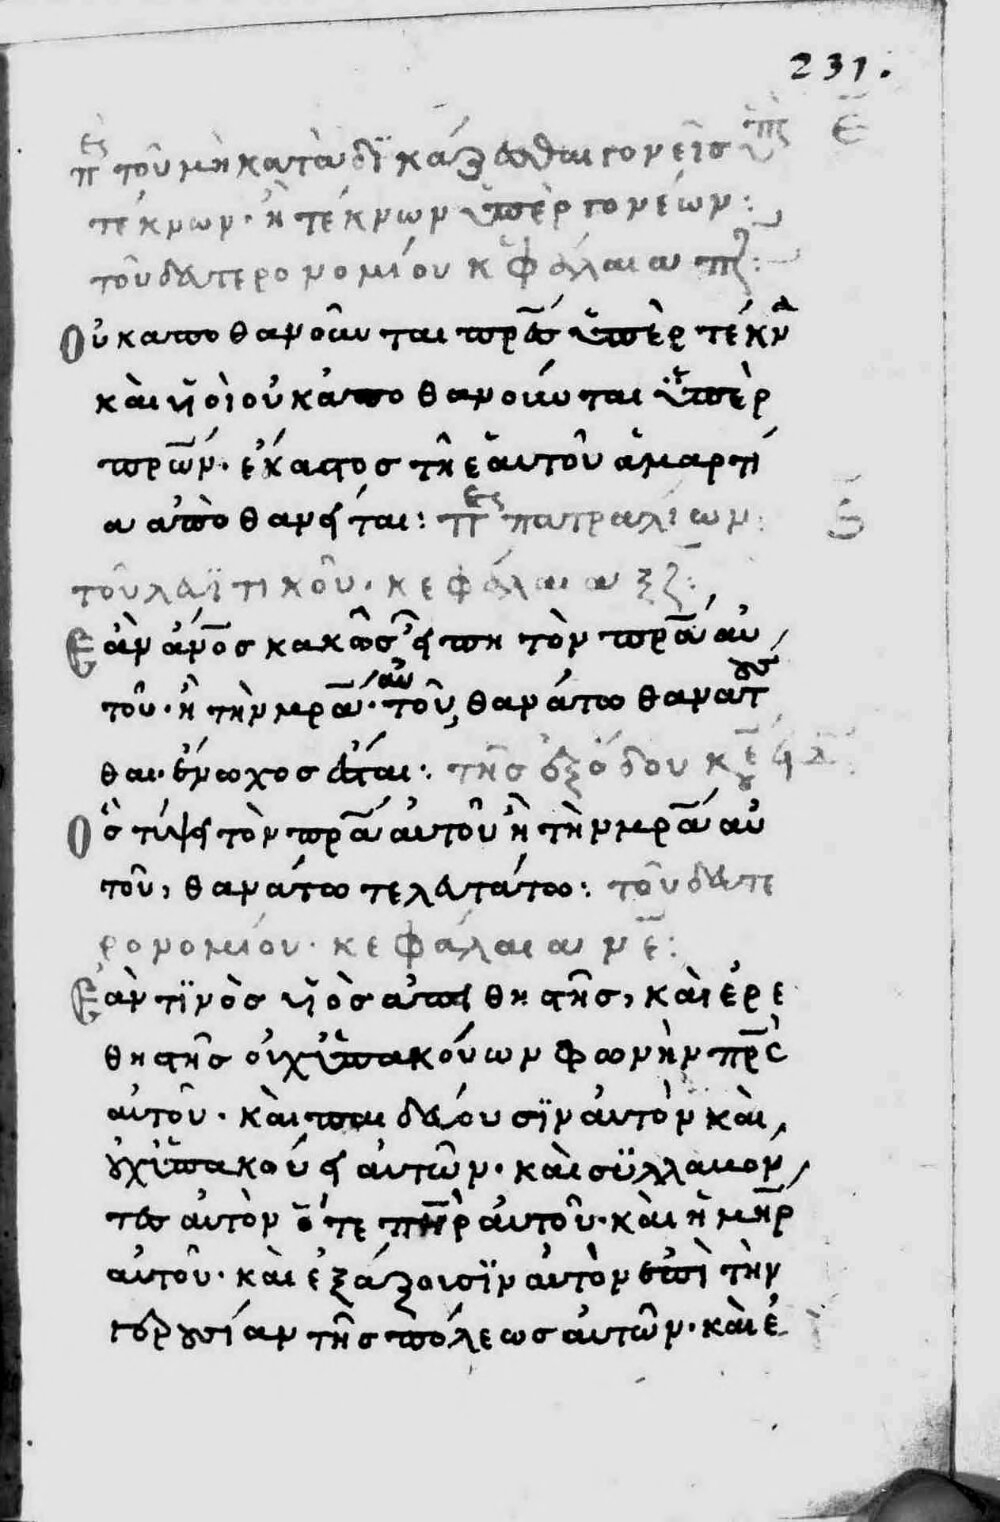 231.
π τοῦ μὴ καταδϊκάζεσθαι γονεῖς ὑπ ε
τέκνων· ἢ τέκνων ὑπὲρ γονέων:
τοῦ δευτερονομίου κεφάλαιον πζ:
Οὐκ αποθανοῦνται πρες ὑπὲρ τέκν
καὶ υἱοὶ οὐκ ἀποθανοῦνται ὑπὲρ
πρων· ἕκαστος τῆ ἑαυτοῦ ἁμαρτί
α αποθανεῖται: π πατραλίων: ϛ
τοῦ λευϊτικοῦ· κεφάλαιον ξζ:
Εὰν ἀνος κακῶς εἴπη τὸν πρα αὐ
τοῦ· ἢ τὴν μρα· αὐτοῦ, θανάτω θανατ
θαι· ἔνοχος ἔσται: τῆς ἐξόδου κε
Ὃς τύπτει τὸν πρα αυτοῦ ἢ τὴν μρα αὐ
τοῦ, θανάτω τελευτάτω: τοῦ δευτε
ρονομίου· κεφάλαιον νε:
Εὰν τϊνὸς υἱὸς απειθὴς ῆ, καὶ ἐρε
θηστὴς οὐχ ὑπακούων φωνὴν πρς
αὐτοῦ· καὶ παιδεύουσϊν αὐτὸν καὶ
οὐχ ὑπακούει αὐτῶν· καὶ σϋλλαβόν
τες αὐτὸν ὅ τε πηρ αὐτοῦ· καὶ ἡ μηρ
αὐτοῦ· καὶ ἐξάξουσϊν αὐτὸν ἐπὶ τὴν
γερουσίαν τῆς πόλεως αὐτῶν· καὶ ἐ